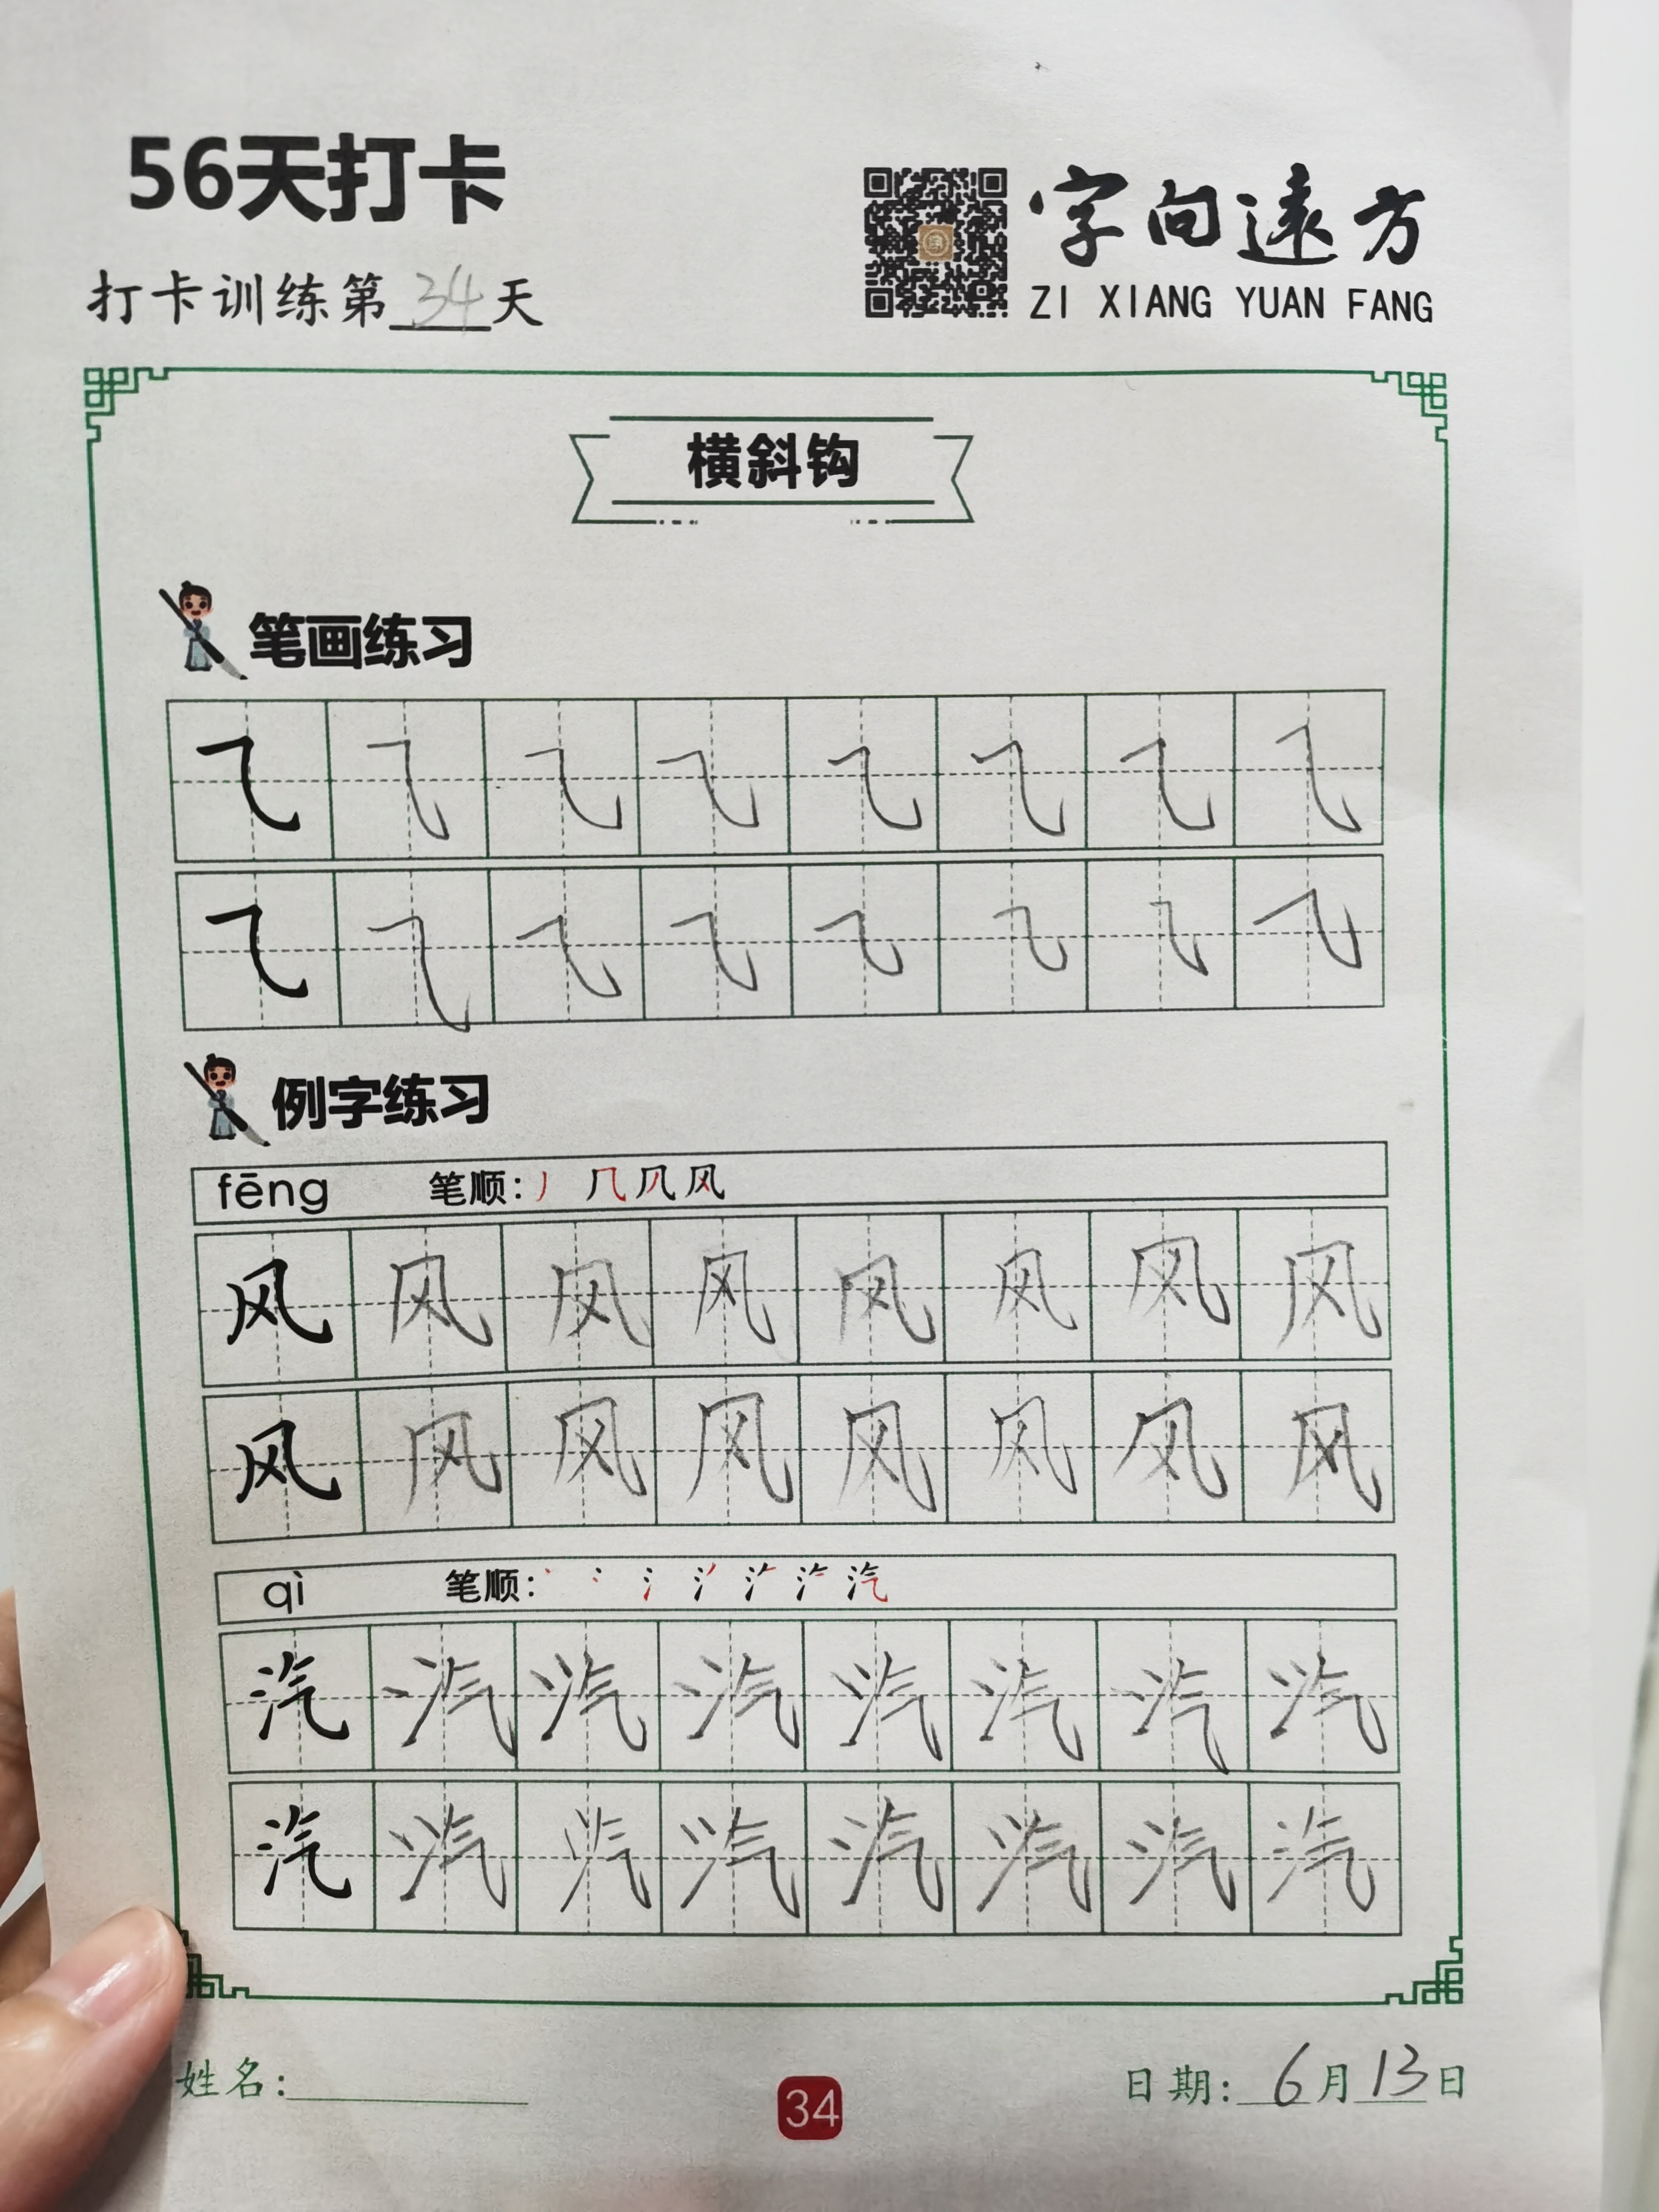 56天打卡
打卡训练第34天
字向遠方
ZI XIANG YUAN FANG
横斜钩
笔画练习
⺄ ⺄ ⺄ ⺄ ⺄ ⺄ ⺄ ⺄
⺄ ⺄ ⺄ ⺄ ⺄ ⺄ ⺄ ⺄
例字练习
fēng 笔顺：丿 几 风
风 风 风 风 风 风 风 风
风 风 风 风 风 风 风 风
qì 笔顺： 汽
汽 汽 汽 汽 汽 汽 汽 汽
汽 汽 汽 汽 汽 汽 汽 汽
姓名：
34
日期：6月13日